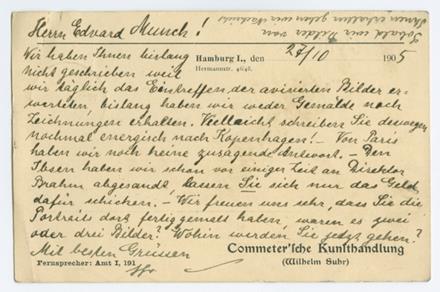 Herrn Edvard Munch!
Sobald wir Bilder von
Ihnen erhalten geben wir Nachricht
Hamburg I., den 27/10 1905
Hermannstr.
Wir haben Ihnen bislang
nicht geschrieben weil
wir täglich das Eintreffen der avisierten Bilder er-
warteten, bislang haben wir weder Gemälde noch
Zeichnungen erhalten. Vielleicht schreiben Sie deswegen
nochmal energisch nach Kopenhagen! – Von Paris
haben wir noch keine zusagende Antwort. – Den
Ibsen haben wir schon vor einiger Zeit an Direktor
Brahm abgesandt, lassen Sie sich nur das Geld
dafür schicken. – Wir freuen uns sehr, dass Sie die
Portraits dort fertig gemalt haben, waren es zwei
oder drei Bilder? Wohin werden Sie jetzt gehen?
Mit besten Grüssen
Commeter'sche Kunsthandlung
(Wilhelm Suhr)
Fernsprecher: Amt I, 191